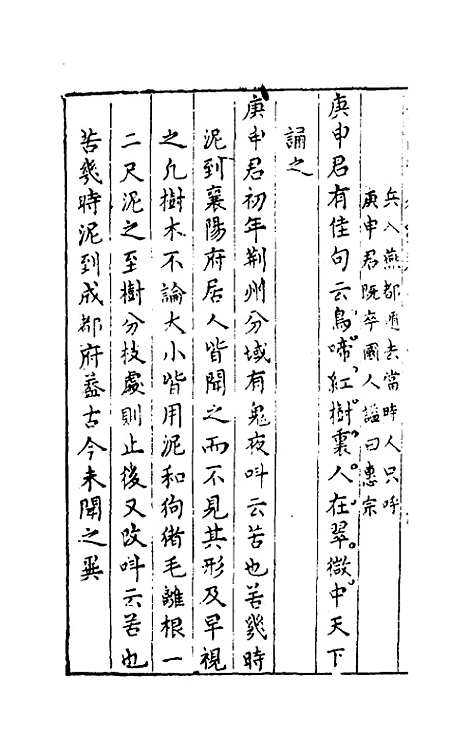 兵入燕都遁去當時人只呼
庚申君既卒國人謚曰惠宗
庚申君有佳句云鳥啼紅樹裏人在翠微中天下
誦之
庚申君初年荆州分域有鬼夜呌云苦也苦幾時
泥到襄陽府居人皆聞之而不見其形及早視
之凢樹木不論大小皆用泥和狗猪毛離根一
二尺泥之至樹分枝處則止後又改呌云苦也
苦幾時泥到成都府蓋古今未聞之異